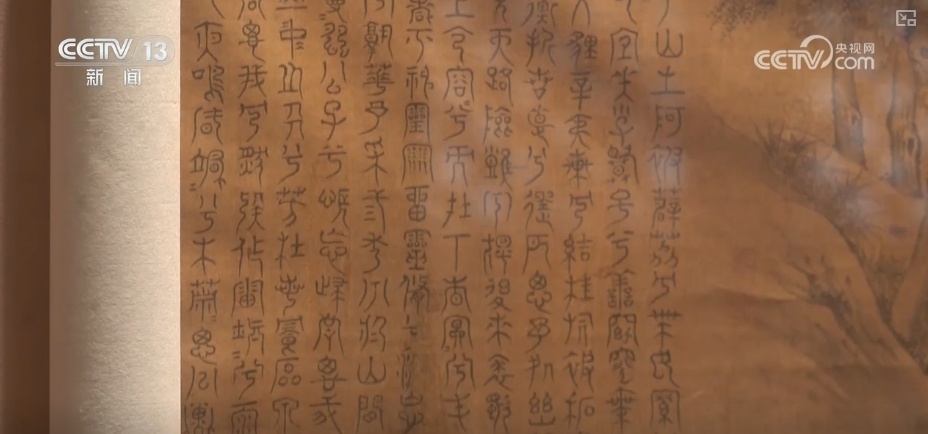 CCTV 13
新闻
央视网
CCTV.com
山之阿被薜荔兮帶女蘿
宜笑子慕予兮善窈窕乘
文貍辛夷車兮結桂旗被石
衡折芳馨兮遺所思余處幽
天路險難兮獨後來表獨
上雲容容兮而在下杳冥冥兮羌
飄兮神靈雨留靈修兮憺忘
孰華予采三秀兮於山間
蔓蔓怨公子兮悵忘歸君思我
山中人兮芳杜若飲石泉
君思我兮然疑作雷填填兮雨
夜鳴風颯颯兮木蕭蕭思公子